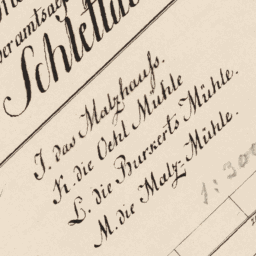 Schletta
I. das Malzhauß.
K. die Oehl Mühle
L. die Burkerts Mühle.
M. die Malz-Mühle.
1:300